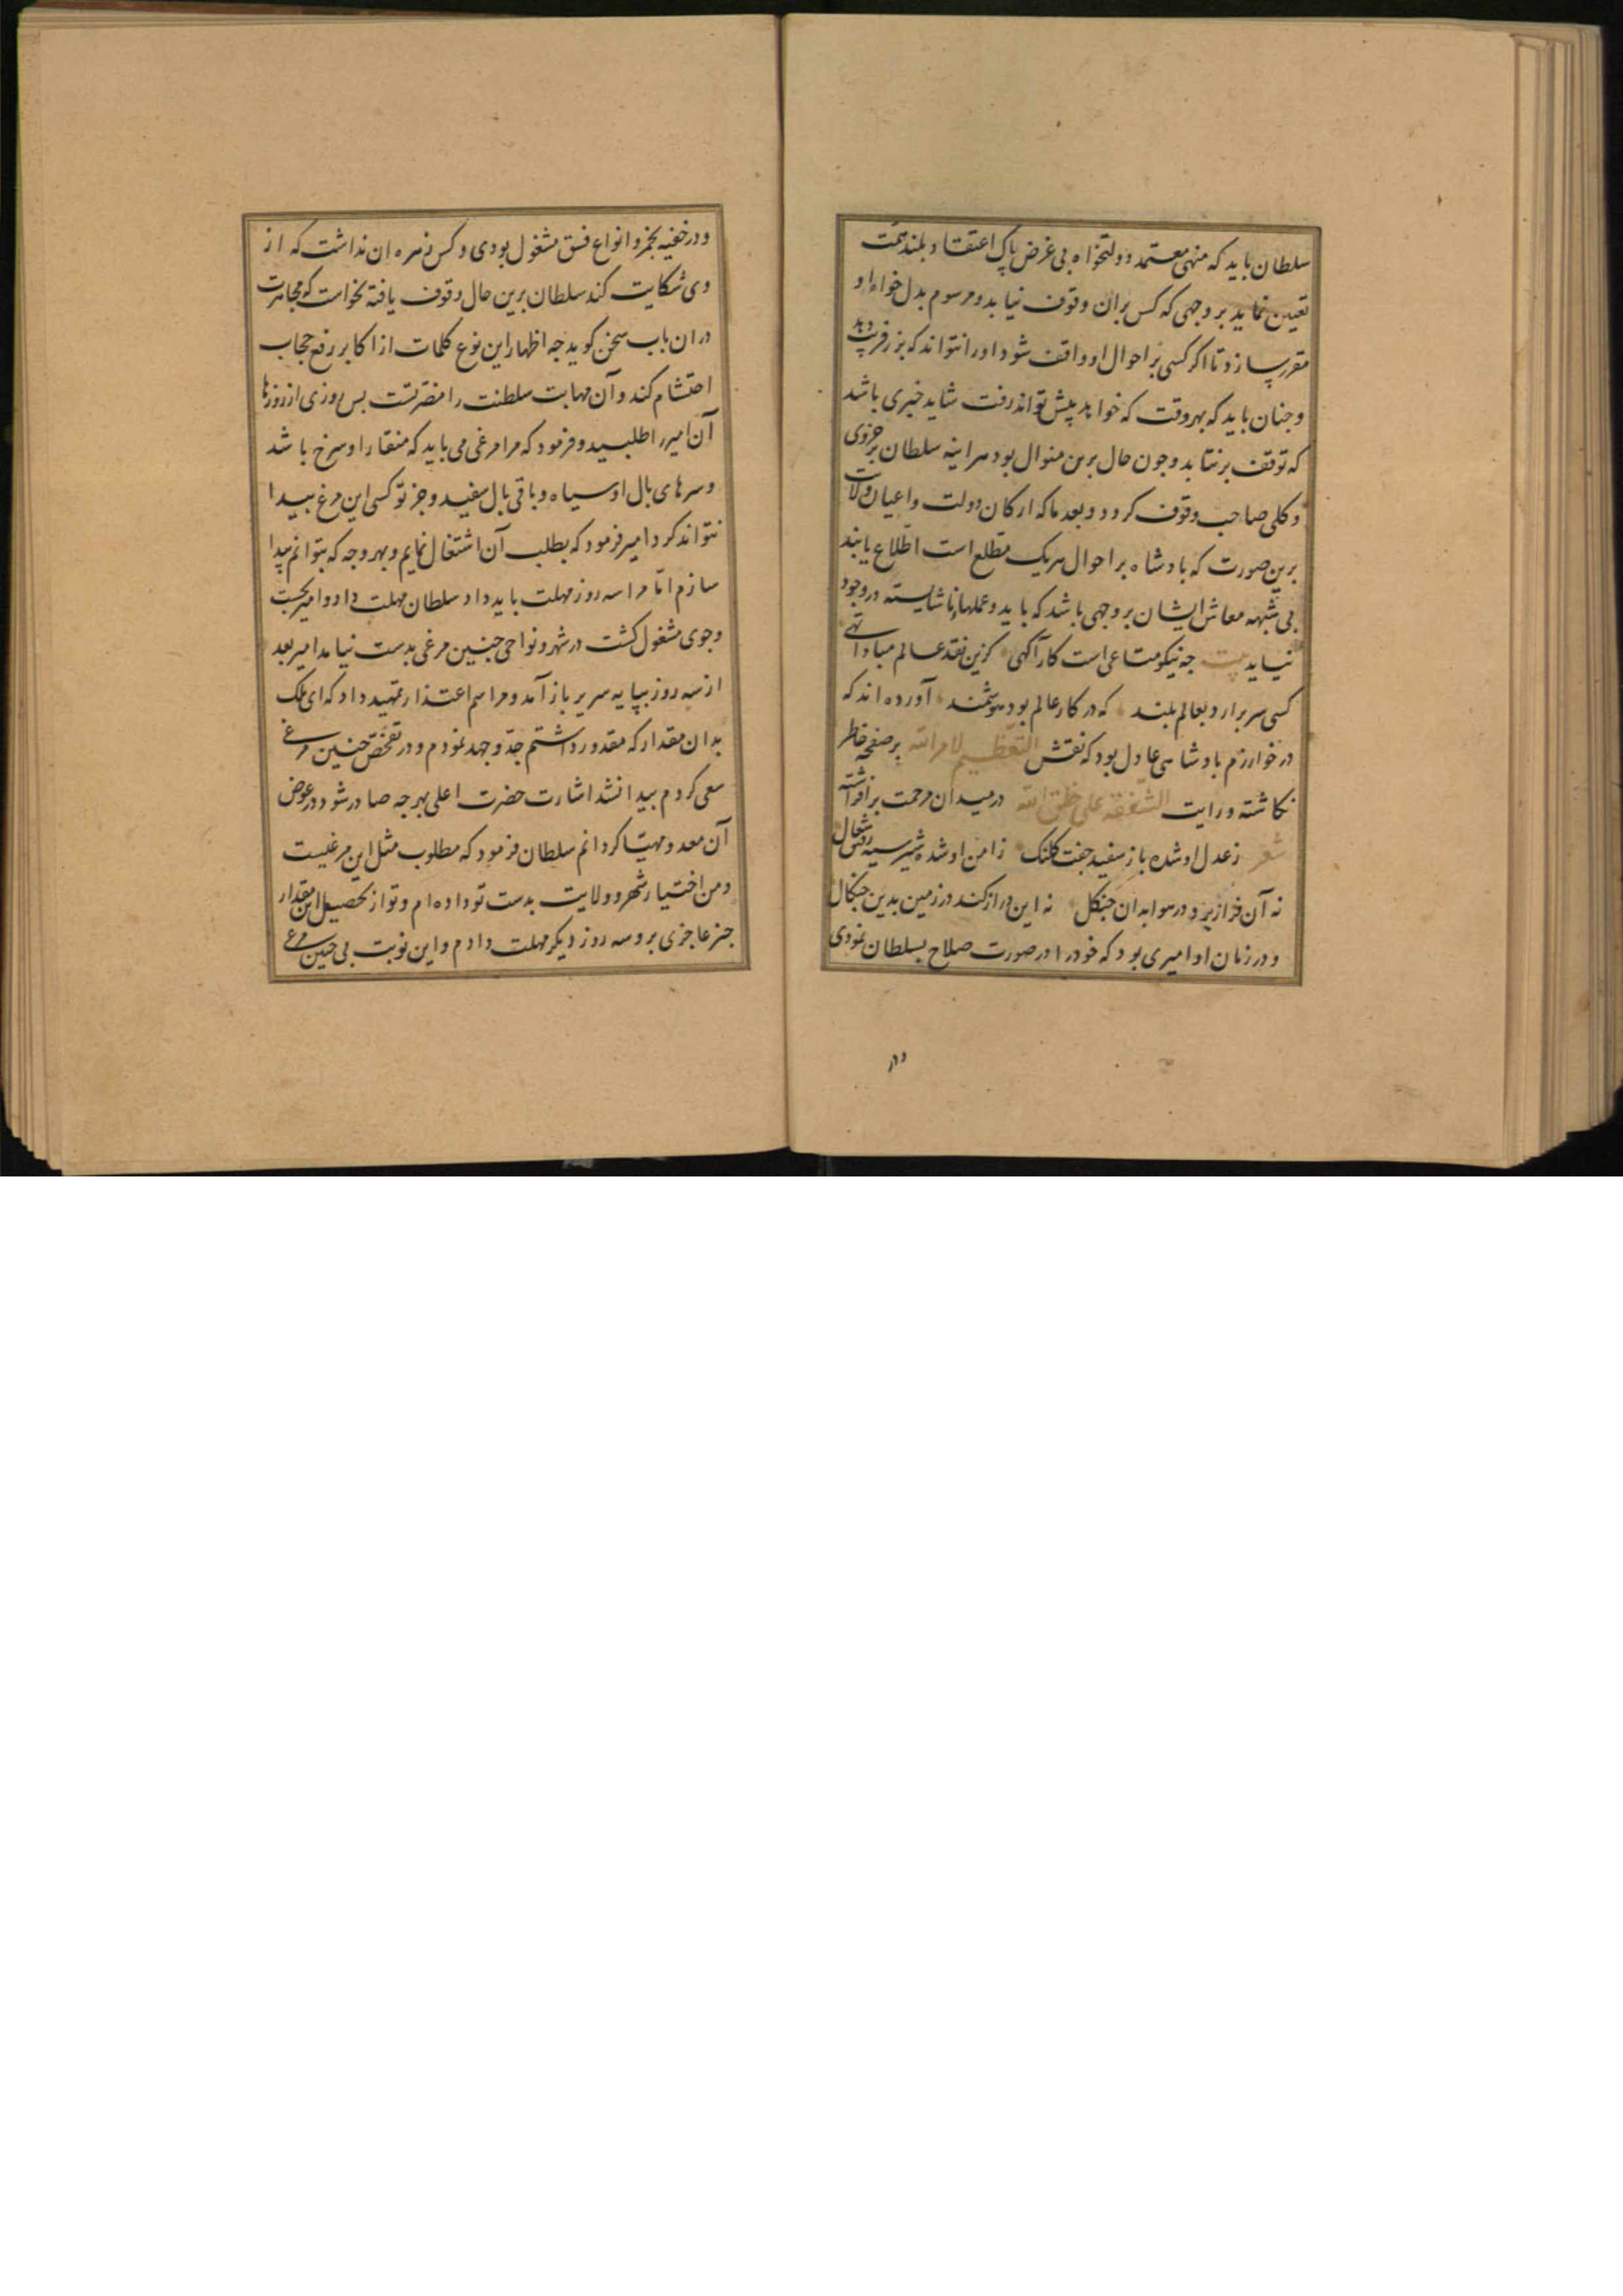 سلطان باید که منهی معتمد دولتخواه بی غرض پاک اعتقاد بلند همت
تعیین نماید بر وجهی که کس بران وقوف نیابد و مرسوم بدل خواه او
مقرر سازد تا اکر کسی بر احوال او واقف شود او را نتواند که بزر فریب دهد
و جنان باید که بهر وقت که خواهد پیش تواند رفت شاید خبری باشد
که توقف برنتابد و جون حال برین منوال بود هر اینه سلطان بر جزوی
و کلی صاحب وقوف کردد و بعد ما که ارکان دولت و اعیان ولایت
برین صورت که بادشاه بر احوال هر یک مطلع است اطلاع یابند
بی شبهه معاش ایشان بر وجهی باشد که باید و عملهاء ناشایسته در وجود
نیاید بیت جه نیکو متاعی است کار آکهی کزین نقد عالم مبادا تهی
کسی سر برارد بعالم بلند که در کار عالم بود هوشمند آورده اند که
در خوارزم بادشاهی عادل بود که نقش التعظیم لامر الله بر صفحه خاطر
نکاشته و رایت الشفقه علی خلق الله در میدان مرحمت برافراشته
شعر ز عدل او شده باز سفید جفت کلنک ز امن او شده شیر سیه رفیق شغال
نه آن فراز برد در هوا بدان جنکل نه این دراز کند در زمین بدین جنکال
و در زمان او امیری بود که خود را در صورت صلاح بسلطان نمودی
ودر
ودر خفیه بخمر و انواع فسق مشغول بودی و کس زهره ان نداشت که از
وی شکایت کند سلطان برین حال وقوف یافته نخواست که مجاهرت
دران باب سخن کوید جه اظهار این نوع کلمات از اکابر رفع حجاب
احتشام کند و آن مهابت سلطنت را مضرتست بس روزی از روزها
آن امیر را طلبید و فرمود که مرا مرغی می باید که منقار او سرخ باشد
و سرهای بال او سیاه و باقی بال سفید و جز تو کسی این مرغ بیدا
نتواند کرد امیر فرمود که بطلب آن اشتغال نمایم و بهر وجه که بتوانم بیدا
سازم اما مرا سه روز مهلت باید داد سلطان مهلت داد و امیر بجست
وجوی مشغول کشت در شهر و نواحی جنین مرغی بدست نیامد امیر بعد
از سه روز بپایه سریر باز آمد و مراسم اعتذار تمهید داد که ای ملک
بدان مقدار که مقدور داشتم جد و جهد نمودم و در تفحص جنین مرغی
سعی کردم بیدا نشد اشارت حضرت اعلی بهر جه صادر شود در عوض
آن معد و مهیا کردانم سلطان فرمود که مطلوب مثل این مرغیست
و من اختیار شهر و ولایت بدست تو داده ام و تو از تحصیل این مقدار
جیز عاجزی برو سه روز دیکر مهلت دادم و این نوبت بی جنین مرغی